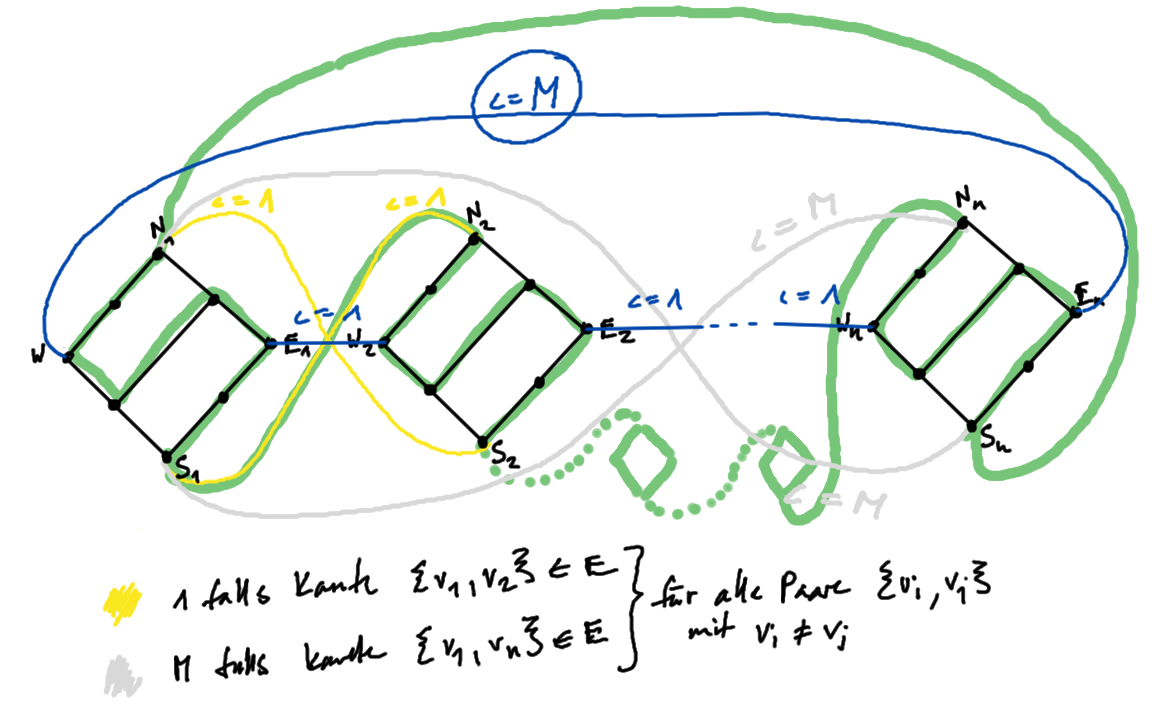 c=M
c=1
c=1
N₁
N₂
c=M
Nₙ
c=1
c=1
c=1
Eₙ
W
E₁
W₂
E₂
Wₙ
S₁
S₂
Sₙ
c=M
1 falls Kante {v₁,v₂} ∈ E
M falls Kante {v₁,vₙ} ∈ E
für alle Paare {vᵢ,vⱼ}
mit vᵢ ≠ vⱼ